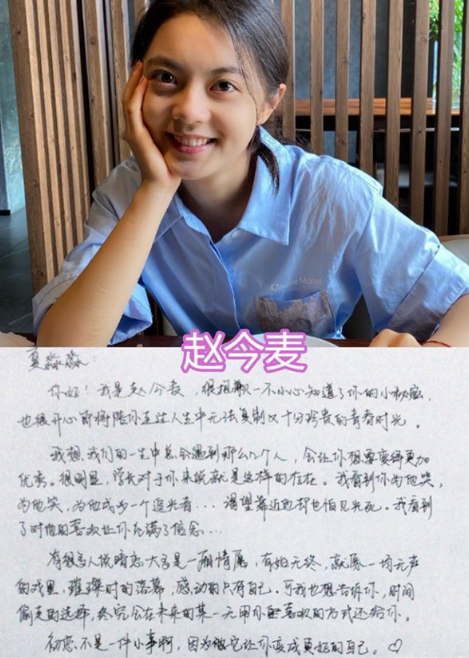 赵今麦
夏淼淼:
你好!我是赵今麦,很抱歉一不小心知道了你的小秘密,
也很开心即将陪你走过人生中无法复制又十分珍贵的青春时光。
我想,我们的一生中总会遇到那么几个人,会让你想要变得更加
优秀。很明显,学长对于你来说就是这样的存在。我看到你为他哭,
为他笑,为他成为一个追光者...渴望靠近的却也怕见光死。我看到
了对他的喜欢让你充满了信念...
有很多人说暗恋大多是一厢情愿,有始无终,就像一场无声
的戏里,璀璨时的落幕,感动的只有自己。可我也想告诉你,时间
偷走的选择,终究会在未来的某一天用你喜欢的方式还给你。
初恋不是一件小事啊,因为让你变成更好的自己。♡